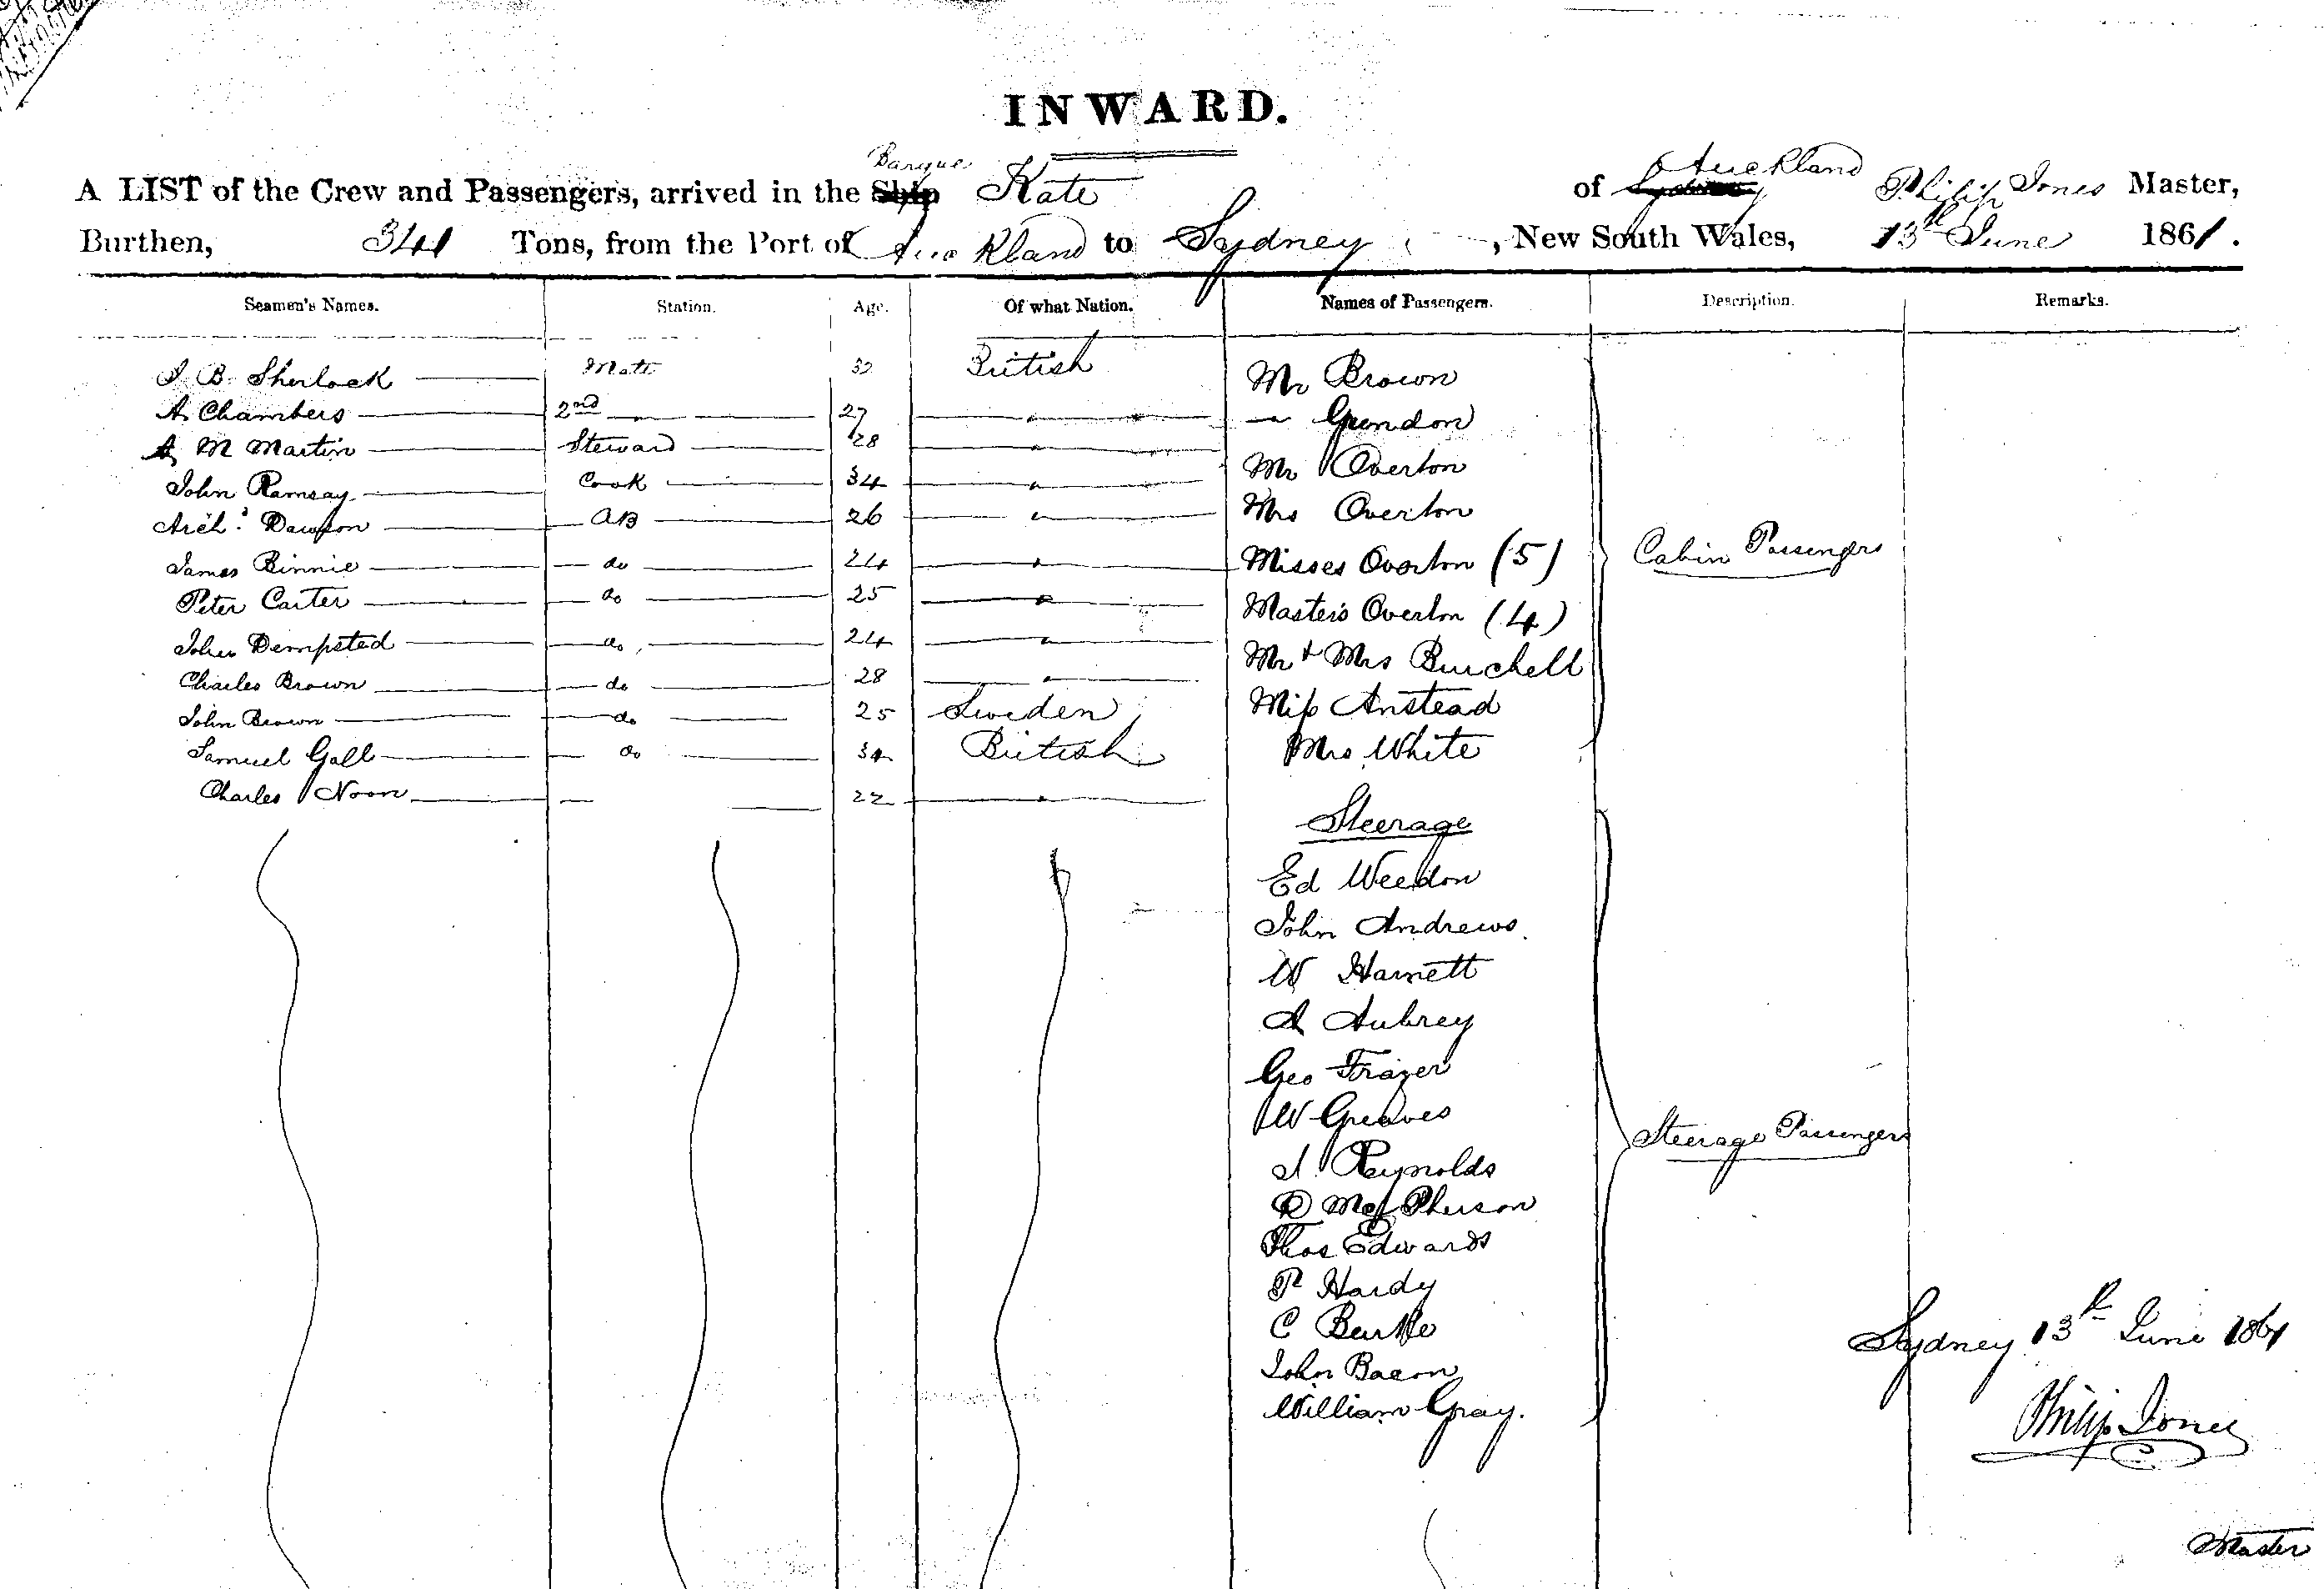 INWARD.
Barque Auckland
A LIST of the Crew and Passengers, arrived in the Ship Kate of Philip Jones Master,
Burthen, 341 Tons, from the Port of Auckland to Sydney, New South Wales, 13th June 1861.
Seamen's Names. Station. Age. Of what Nation. Names of Passengers. Description. Remarks.
J. B. Sherlock Mate 32 British Mr Brown
A. Chambers 2nd 27 " " Grendon
A. M Martin Steward 28 " Mr Overton
John Ramsay Cook 34 " Mrs Overton
Arch.d Dawson AB 26 " Misses Overton (5) Cabin Passengers
James Binnie do 24 " Masters Overton (4)
Peter Carter do 25 " Mr & Mrs Burchell
John Dempsted do 24 " Miss Anstead
Charles Brown do 28 " Mrs White
John Brown do 25 Sweden
Samuel Gall do 34 British
Charles Noon 22 "
Steerage
Ed Weedon
John Andrews
W Harnett
A Aubrey
Geo Frazer
W Greaves
J. Reynolds Steerage Passengers
D McPherson
Thos Edwards
P Hardy
C Burke
John Bacon
William Gray.
Sydney 13th June 1861
Philip Jones
Master